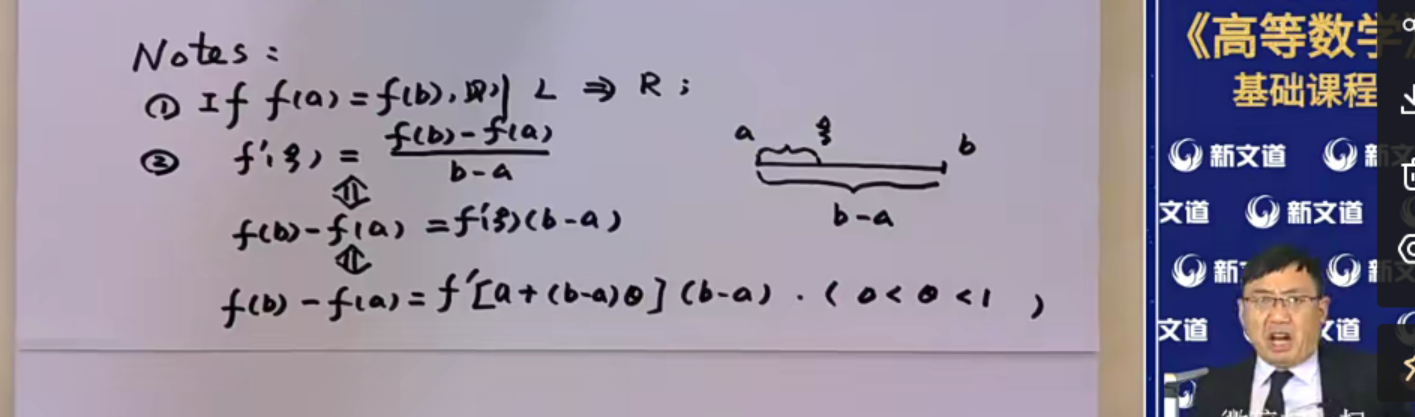 Notes：
① If f(a)=f(b), 则 L ⇒ R；
② f'(ξ) = \frac{f(b)-f(a)}{b-a}
⇕
f(b)-f(a) = f'(ξ)(b-a)
⇕
f(b)-f(a) = f'[a+(b-a)θ](b-a). (0<θ<1 )
a ξ b
b-a
《高等数学
基础课程
新文道 新文
文道 新文道
新 新文
文道 文道